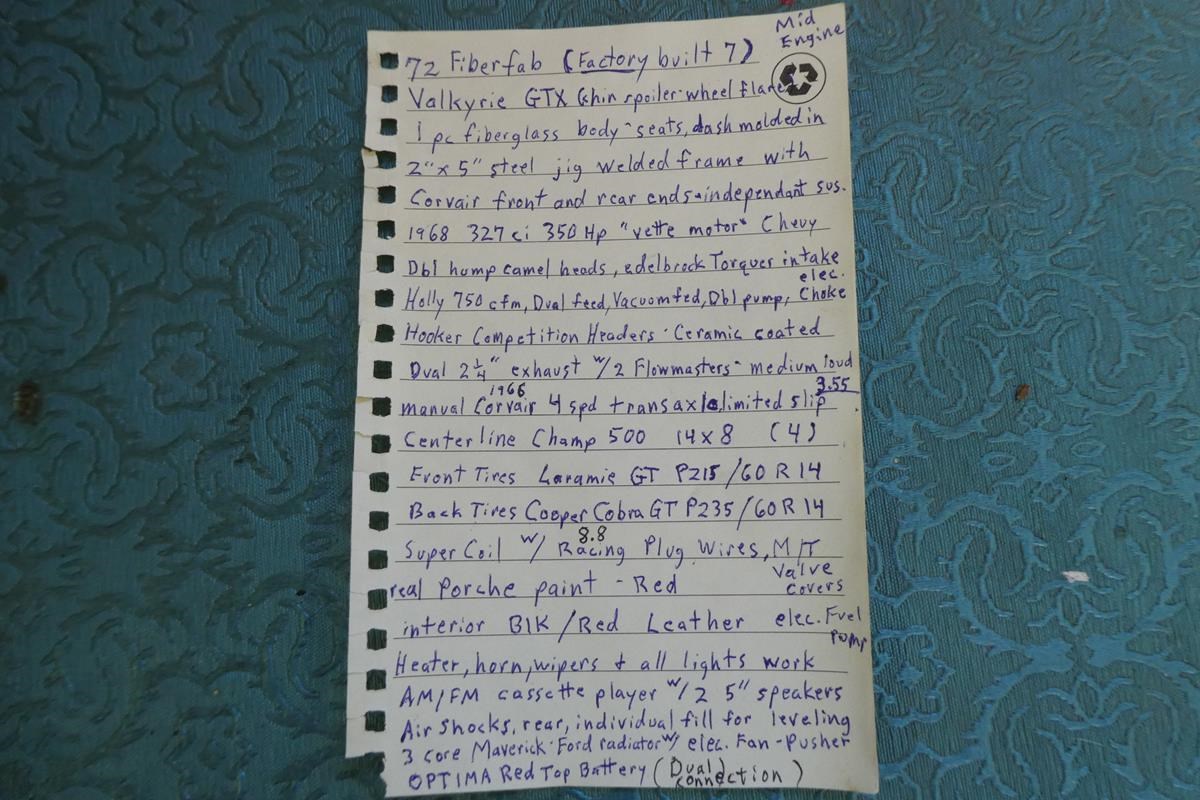 Mid
Engine
72 Fiberfab (Factory built 7)
Valkyrie GTX Chin spoiler-wheel flares
1 pc fiberglass body - seats, dash molded in
2" x 5" steel jig welded frame with
Corvair front and rear ends - independant sus.
1968 327 ci 350 Hp "vette motor" Chevy
Dbl hump camel heads, edelbrock Torquer intake
elec.
Holly 750 cfm, Dual feed, Vacuomfed, Dbl pump, Choke
Hooker Competition Headers - Ceramic coated
Dual 2 1/4" exhaust w/2 Flowmasters - medium loud
1966 3.55
manual Corvair 4 spd transaxle, limited slip
Centerline Champ 500 14x8 (4)
Front Tires Laramie GT P215/60 R 14
Back Tires Cooper Cobra GT P235/60 R 14
8.8
Super Coil w/ Racing Plug Wires, M/T
Valve
covers
real Porche paint - Red
interior Blk/Red Leather elec. Fuel
Pump
Heater, horn, wipers + all lights work
AM/FM cassette player w/2 5" speakers
Air Shocks, rear, individual fill for leveling
3 core Maverick-Ford radiator w/ elec. Fan-Pusher
OPTIMA Red Top Battery (Dual connection)